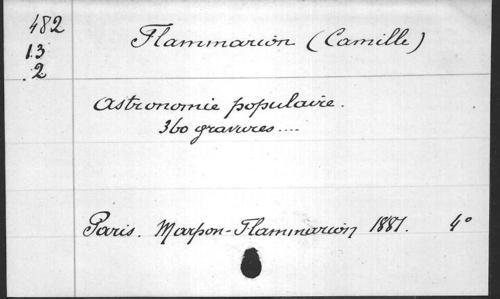 482
13
2
Flammarion (Camille)
Astronomie populaire.
360 gravures....
Paris. Marpon-Flammarion 1881. 4°